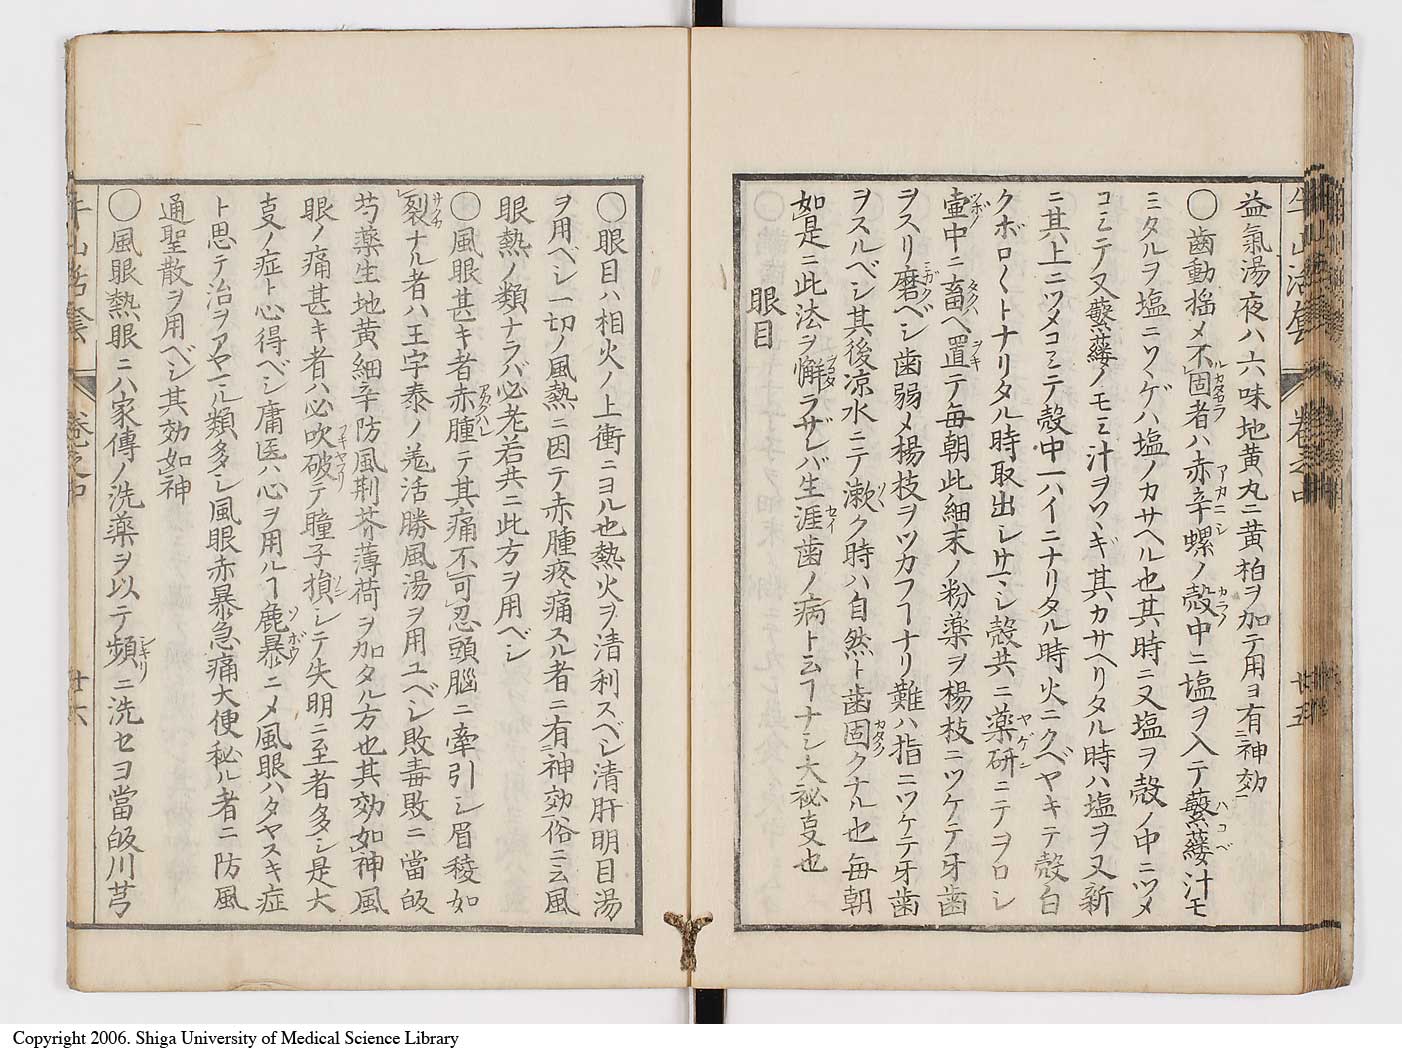 益氣湯夜ハ六味地黄丸ニ黄柏ヲ加テ用ヨ有神効
〇齒動揺乄不固者ハ赤辛螺ノ殼中ニ塩ヲ入テ蘩蔞汁モ
ミタルヲ塩ニソヽゲハ塩ノカサヘル也其時ニ又塩ヲ殼ノ中ニツメ
コミテ又蘩蔞ノモミ汁ヲソヽギ其カサヘリタル時ハ塩ヲ又新
ニ其上ニツメコミテ殼中一ハイニナリタル時火ニクベヤキテ殼白
クボロ〱トナリタル時取出シサマシ殼共ニ薬研ニテヲロシ
壷中ニ畜ヘ置テ毎朝此細末ノ粉薬ヲ楊枝ニツケテ牙歯
ヲスリ磨ベシ歯弱メ楊枝ヲツカフヿナリ難ハ指ニツケテ牙歯
ヲスルベシ其後凉水ニテ漱ク時ハ自然ト歯固クナル也毎朝
如是ニ此法ヲ懈ラザレバ生涯歯ノ病ト云ヿナシ大祕叓也
眼目
牛山活套 卷之中 廿五
〇眼目ハ相火ノ上衝ニヨル也熱火ヲ清利スベシ清肝明目湯
ヲ用ベシ一切ノ風熱ニ因テ赤腫疼痛スル者ニ有神効俗ニ云風
眼熱ノ類ナラバ必老若共ニ此方ヲ用ベシ
〇風眼甚キ者赤腫テ其痛不可忍頭腦ニ牽引シ眉稜如
裂ナル者ハ王宇泰ノ羗活勝風湯ヲ用ユベシ敗毒散ニ當皈
芍薬生地黄細辛防風荆芥薄荷ヲ加タル方也其効如神風
眼ノ痛甚キ者ハ必吹破テ瞳子損シテ失明ニ至者多シ是大
叓ノ症ト心得ベシ庸医ハ心ヲ用ルヿ麁暴ニ乄風眼ハタヤスキ症
ト思テ治ヲアヤマル類多シ風眼赤暴急痛大便秘ル者ニ防風
通聖散ヲ用ベシ其効如神
〇風眼熱眼ニハ家傳ノ洗薬ヲ以テ頻ニ洗セヨ當皈川芎
牛山活套 卷之中 廿六
Copyright 2006. Shiga University of Medical Science Library